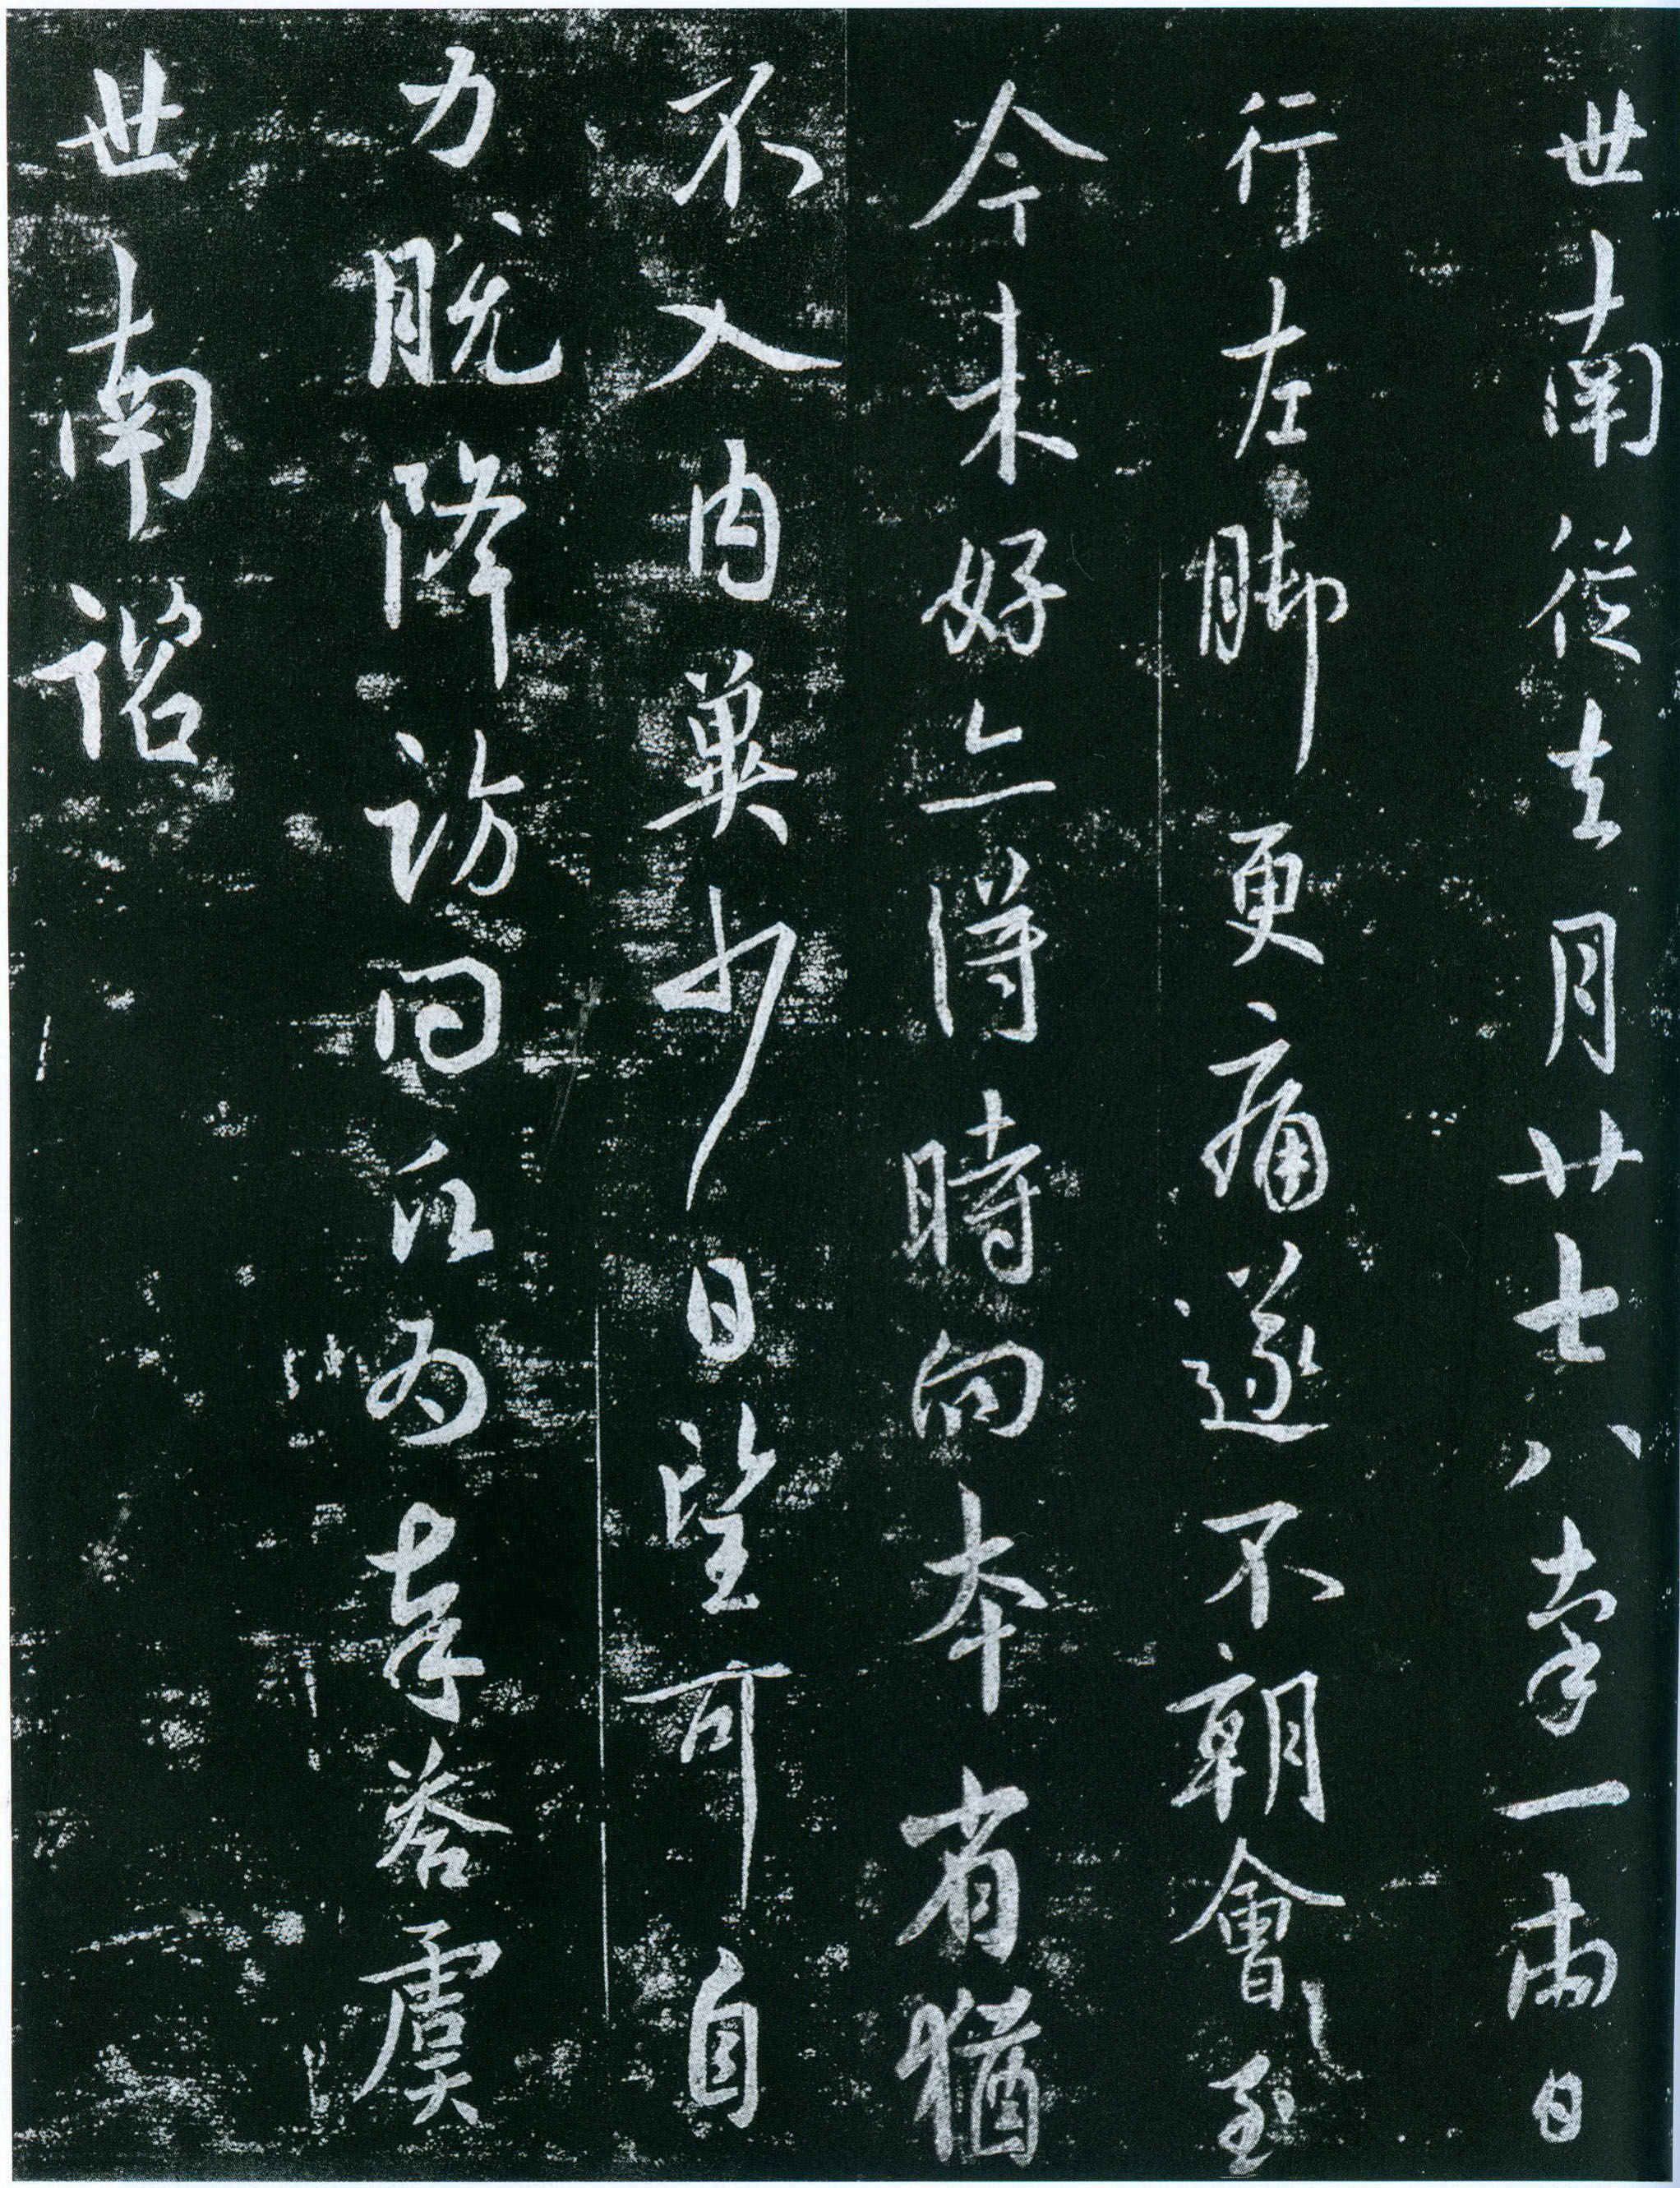 世南從去月廿七八牽一兩日
行左脚更痛遂不朝會至
今未好亦得時向本省猶
不入内冀少日望可自
力脱降訪問願為奉答虞
世南諮